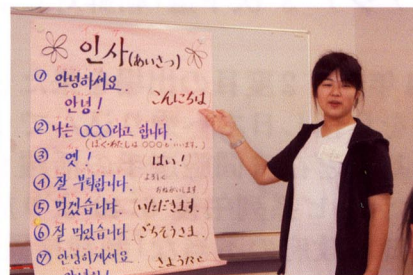 인사(あいさつ)
① 안녕하세요.
안녕! こんにちは
② 나는 OOO라고 합니다.
(ぼく・わたしは OOOといいます。)
③ 옛! (はい!)
④ 잘 부탁합니다. よろしく
おねがいします
⑤ 먹겠습니다. (いただきます.)
⑥ 잘 먹었습니다 (ごちそうさま.)
⑦ 안녕히계세요 さようなら